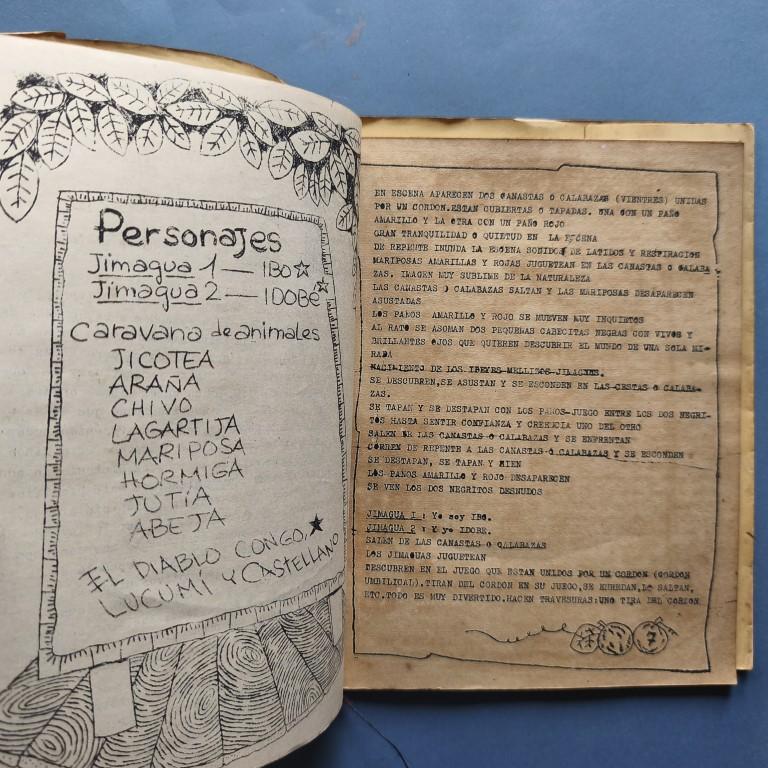 Personajes
Jimagua 1 — IBO
Jimagua 2 — IDOBE
Caravana de animales
JICOTEA
ARAÑA
CHIVO
LAGARTIJA
MARIPOSA
HORMIGA
JUTÍA
ABEJA
EL DIABLO CONGO,
LUCUMÍ Y CASTELLANO
EN ESCENA APARECEN DOS CANASTAS O CALABAZAS (VIENTRES) UNIDAS
POR UN CORDON.ESTAN CUBIERTAS O TAPADAS. UNA CON UN PAÑO
AMARILLO Y LA OTRA CON UN PAÑO ROJO
GRAN TRANQUILIDAD O QUIETUD EN LA ESCENA
DE REPENTE INUNDA LA ESCENA SONIDOS DE LATIDOS Y RESPIRACION
MARIPOSAS AMARILLAS Y ROJAS JUGUETEAN EN LAS CANASTAS O CALABA
ZAS. IMAGEN MUY SUBLIME DE LA NATURALEZA
LAS CANASTAS O CALABAZAS SALTAN Y LAS MARIPOSAS DESAPARECEN
ASUSTADAS
LOS PAÑOS AMARILLO Y ROJO SE MUEVEN MUY INQUIETOS
AL RATO SE ASOMAN DOS PEQUEÑAS CABECITAS NEGRAS CON VIVOS Y
BRILLANTES OJOS QUE QUIEREN DESCUBRIR EL MUNDO DE UNA SOLA MI-
RADA
NACIMIENTO DE LOS IBEYES-MELLIZOS-JIMAGUAS.
SE DESCUBREN,SE ASUSTAN Y SE ESCONDEN EN LAS CESTAS O CALABA-
ZAS.
SE TAPAN Y SE DESTAPAN CON LOS PAÑOS-JUEGO ENTRE LOS DOS NEGRI-
TOS HASTA SENTIR CONFIANZA Y CREENCIA UNO DEL OTRO
SALEN DE LAS CANASTAS O CALABAZAS Y SE ENFRENTAN
CORREN DE REPENTE A LAS CANASTAS O CALABAZAS Y SE ESCONDEN
SE DESTAPAN, SE TAPAN Y RIEN
LOS PAÑOS AMARILLO Y ROJO DESAPARECEN
SE VEN LOS DOS NEGRITOS DESNUDOS
JIMAGUA 1 : Yo soy IBO.
JIMAGUA 2 : Y yo IDOBE.
SALEN DE LAS CANASTAS O CALABAZAS
LOS JIMAGUAS JUGUETEAN
DESCUBREN EN EL JUEGO QUE ESTAN UNIDOS POR UN CORDON (CORDON
UMBILICAL).TIRAN DEL CORDON EN SU JUEGO,SE ENREDAN,LO SALTAN,
ETC.TODO ES MUY DIVERTIDO.HACEN TRAVESURAS:UNO TIRA DEL CORDON
7